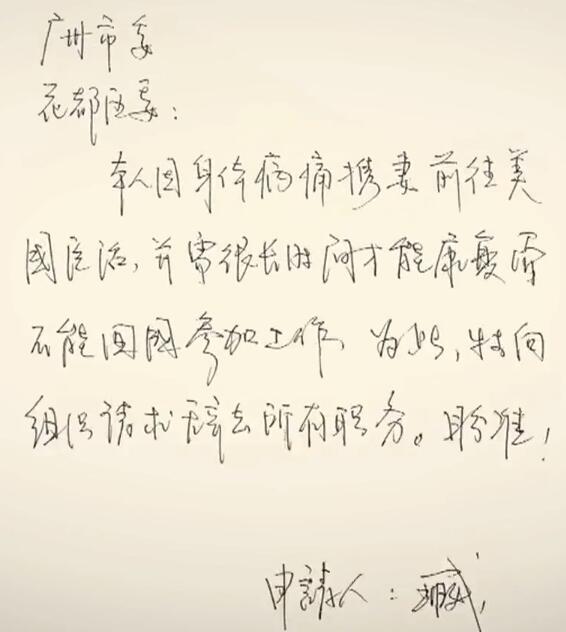 广州市委
花都区委：
本人因身体病痛携妻前往美
國医治，并需很长时间才能康复暂
不能回國参加工作，为此，特向
组织请求辞去所有职务。盼准！
申請人：